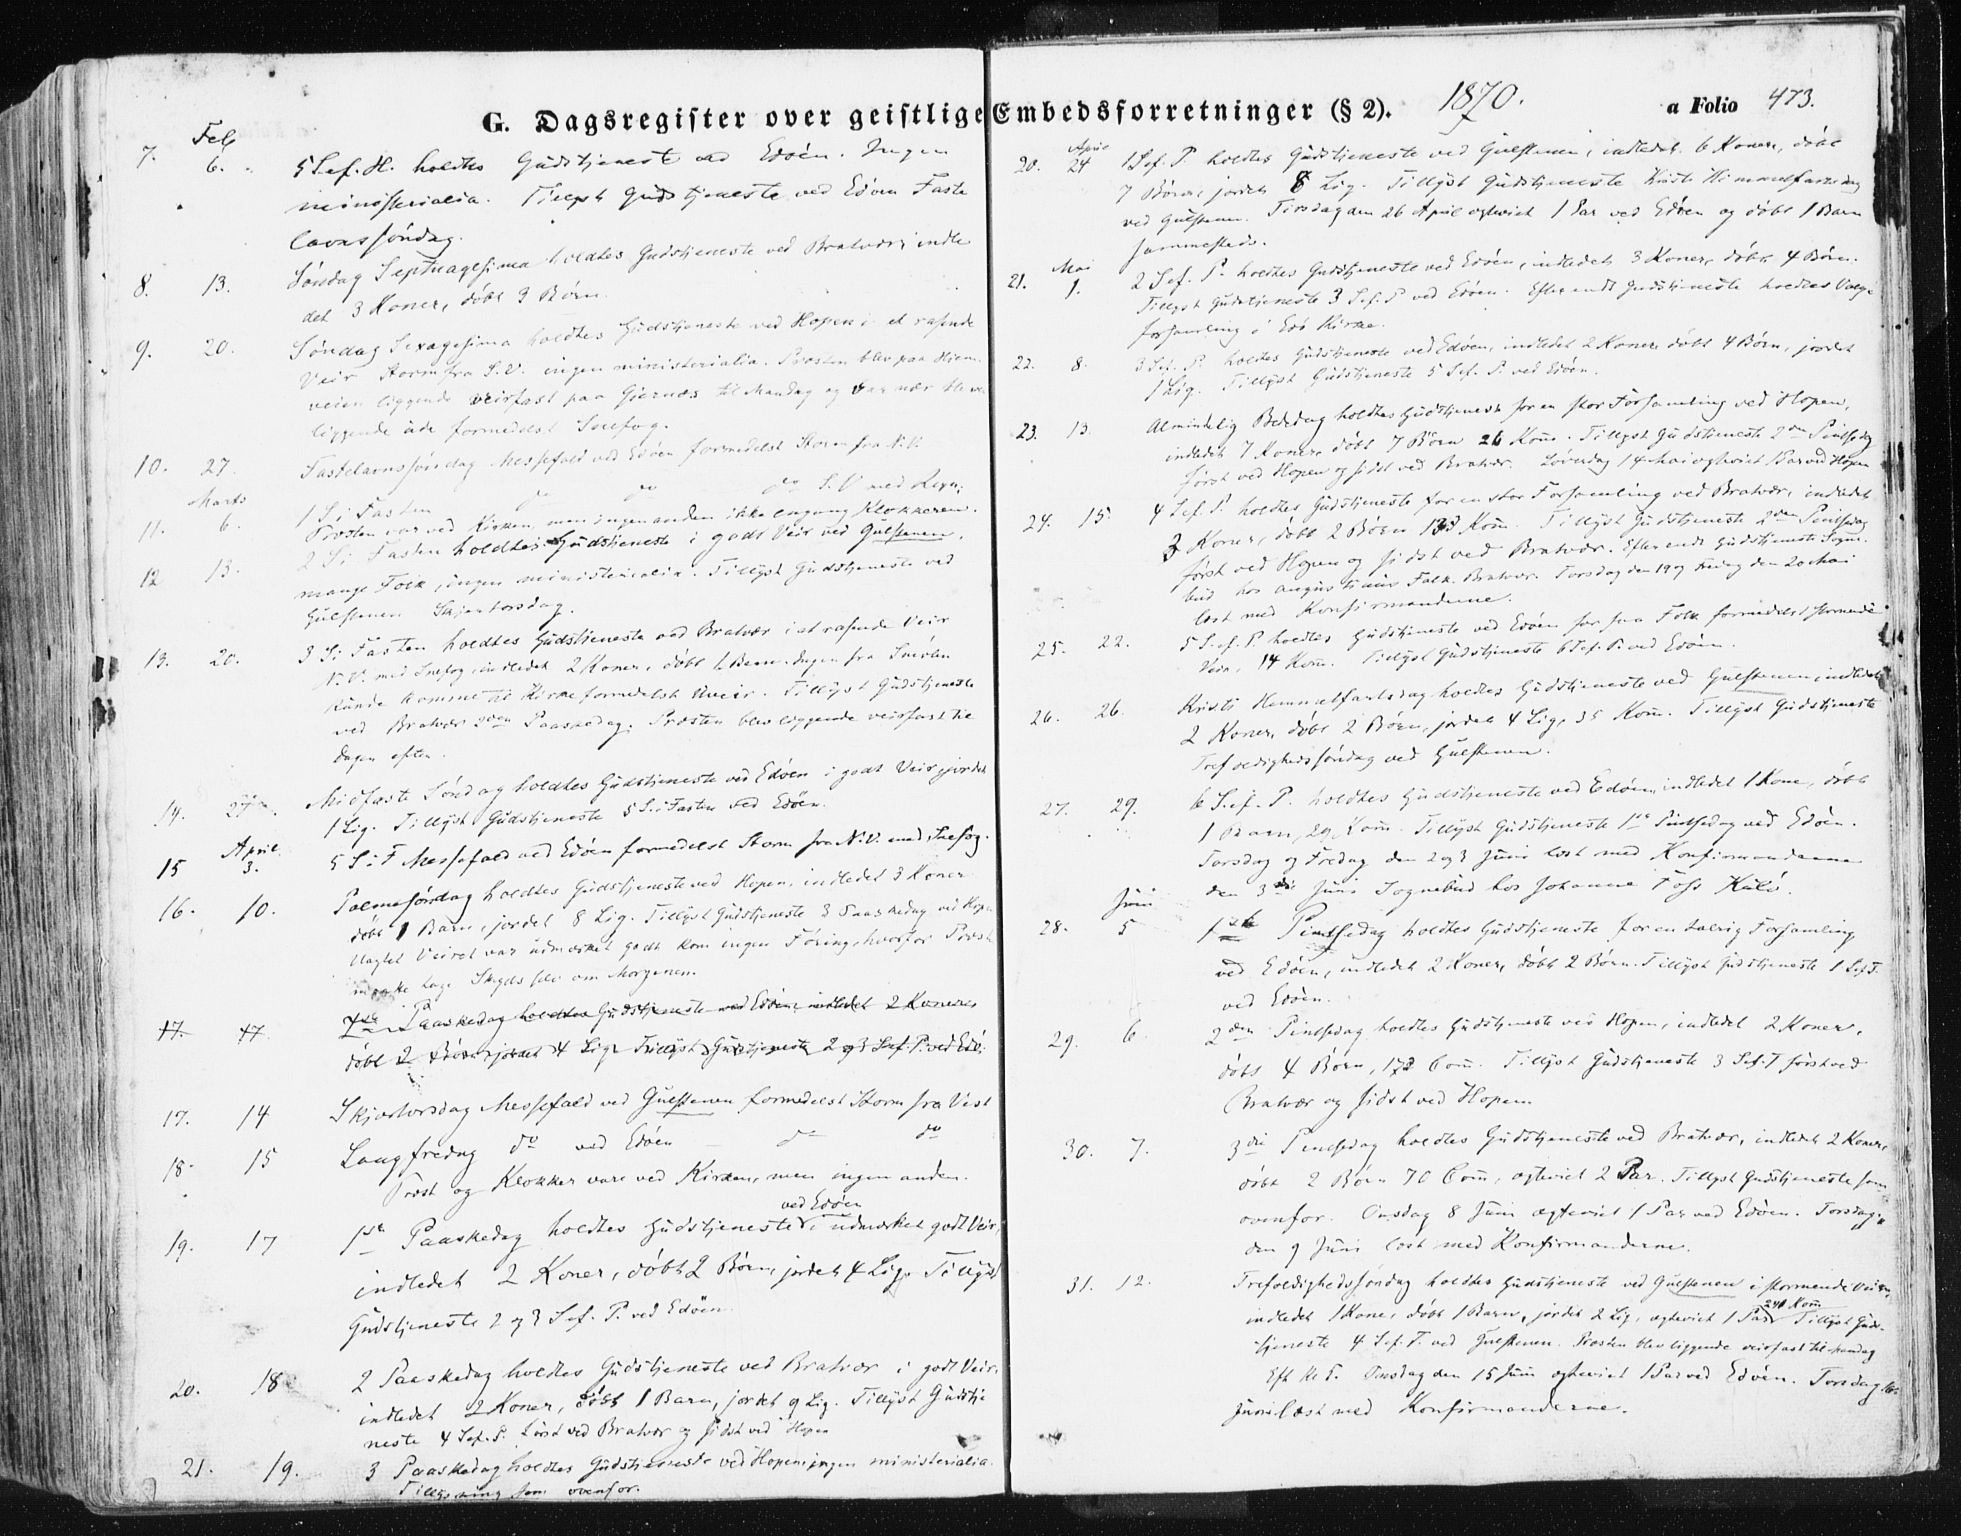 G. Dagsregister over geistlige Embedsforretninger (§ 2). 1870. a Folio 473.
Feb
7. 6. 5 S.ef.H. holdtes Gudstjeneste ved Edöen. Ingen
ministerialia. Tillyst Gudstjeneste ved Edöen Faste
lavnssöndag.
8. 13. Söndag Septuagesima holdtes Gudstjeneste ved Bratvær, indle
det 3 Koner, döbt 3 Börn.
9. 20. Söndag Sexagesima holdtes Gudstjeneste ved Hopen i et rasende
Veir Storm fra S.V. ingen ministerialia. Provsten blev paa Hiem
veien liggende veirfast paa Giernæs til Mandag og var nær bleven
liggende ude formedelst Snefog.
10. 27. Fastelavnssöndag Messefald ved Edöen formedelst Storm fra N.V.
Marts
11. 6. 1 S. i Fasten do do do S.V med Regn;
Provsten var ved Kirken, men ingen anden ikke engang Klokkeren.
12 13. 2 S. i Fasten holdtes Gudstjeneste i godt Veir ved Gulstenen,
mange Folk, ingen ministerialia. Tillyst Gudstjeneste ved
Gulstenen Skjærtorsdag.
13. 20. 3 S. i Fasten holdtes Gudstjeneste ved Bratvær i et rasende Veir
N.V. med Snefog, indledet 2 Koner, döbt 1 Barn. Ingen fra Smölen
kunde komme til Kirke formedelst Uveir. Tillyst Gudstjeneste
ved Bratvær 2den Paaskedag. Provsten blev liggende veirfast til
Dagen efter.
14. 27. Midfaste Söndag holdtes Gudstjeneste ved Edöen i godt Veir, jordet
1 Lig. Tillyst Gudstjeneste 5 S. i Fasten ved Edöen.
April
15 3. 5 S. i F Messefald ved Edöen formedelst Storm fra N.V. med Snefog.
16. 10. Palmesöndag holdtes Gudstjeneste ved Hopen, indledet 3 Koner
döbt 1 Barn, jordet 8 Lig. Tillyst Gudstjeneste 3 Paaskedag ved Hopen
Uagtet Veiret var udmærket godt kom ingen Föring hvorfor Provst
maatte tage Skyds selv om Morgenen.
17. 17. 1ste Paaskedag holdtes Gudstjeneste ved Edöen, indledet 2 Koner
döbt 2 Börn jordet 4 Lig. Tillyst Gudstjeneste 2 og 3 S.ef.P. ved Edö.
17. 14 Skjærtorsdag Messefald ved Gulstenen formedelst Storm fra Vest
18. 15 Langfredag do ved Edöen do do
Provst og Klokker vare ved Kirken, men ingen anden.
ved Edöen
19. 17 1ste Paaskedag holdtes Gudstjeneste i udmærket godt Veir,
indledet 2 Koner, döbt 2 Börn, jordet 4 Lig. Tillyst
Gudstjeneste 2 og 3 S.ef.P. ved Edöen.
20. 18 2 Paaskedag holdtes Gudstjeneste ved Bratvær i godt Veir,
indledet 2 Koner, döbt 1 Barn, jordet 9 Lig. Tillyst Gudstje
neste 4 S.ef.P. först ved Bratvær og sidst ved Hopen
21. 19. 3 Paaskedag holdtes Gudstjeneste ved Hopen, ingen ministerialia.
Tillysning som ovenfor.
April
20. 24 1 S.ef.P holdtes Gudstjeneste ved Gulstenen, indledet 6 Koner, döbt
7 Börn, jordet 8 Lig. Tillyst Gudstjeneste Kristi Himmelfartsdag
ved Gulstenen. Tirsdagen 26 April ægteviet 1 Par ved Edöen og döbt 1 Barn
sammesteds.
Mai
21. 1. 2 S.ef.P. holdtes Gudstjeneste ved Edöen, indledet 3 Koner, döbt 4 Börn.
Tillyst Gudstjeneste 3 S.ef.P ved Edöen. Efter endt Gudstjeneste holdtes Valg-
forsamling i Edö Kirke.
22. 8. 3 S.ef.P. holdtes Gudstjeneste ved Edöen, indledet 2 Koner döbt 4 Börn, jordet
1 Lig. Tillyst Gudstjeneste 5 S.ef.P. ved Edöen.
23. 13. Almindelig Bededag holdtes Gudstjeneste for en stor Forsamling ved Hopen,
indledet 7 Koner, döbt 7 Börn 26 Kom. Tillyst Gudstjeneste 2den Pintsedag
först ved Hopen og sidst ved Bratvær. Löverdag 14 Mai ægteviet 1 Par ved Hopen
24. 15. 4 S.ef.P. holdtes Gudstjeneste for en stor Forsamling ved Bratvær, indledet
3 Koner, döbt 2 Börn 133 Kom. Tillyst Gudstjeneste 2den Pintsedag
först ved Hopen og sidst ved Bratvær. Efter endt Gudstjeneste Sogne-
bud hos Falk. Bratvær. Torsdag den 19 og Fredag den 20 Mai
læst med Konfirmanderne.
25. 22. 5 S.ef.P holdtes Gudstjeneste ved Edöen for faa Folk formedelst stormende
Veir, 14 Kom. Tillyst Gudstjeneste 6 S.ef.P. ved Edöen.
26. 26. Kristi Himmelfartsdag holdtes Gudstjeneste ved Gulstenen, indledet
2 Koner, döbt 2 Börn, jordet 4 Lig, 35 Kom. Tillyst Gudstjeneste
Trefoldighedssöndag ved Gulstenen.
27. 29. 6 S.ef.P. holdtes Gudstjeneste ved Edöen, indledet 1 Kone, döbt
1 Barn, 29 Kom. Tillyst Gudstjeneste 1ste Pintsedag ved Edöen.
Torsdag og Fredag den 2 og 3 Juni læst med Konfirmanderne
den 3die Juni Sognebud hos Johanne Foss Kulö.
Juni
28. 5 1ste Pintsedag holdtes Gudstjeneste for en talrig Forsamling
ved Edöen, indledet 2 Koner, döbt 2 Börn. Tillyst Gudstjeneste 1 S.ef.T.
ved Edöen.
29. 6 2den Pintsedag holdtes Gudstjeneste ved Hopen, indledet 2 Koner,
döbt 4 Börn, 173 Com. Tillyst Gudstjeneste 3 S.ef.T först ved
Bratvær og sidst ved Hopen
30. 7. 3die Pintsedag holdtes Gudstjeneste ved Bratvær, indledet 2 Koner,
döbt 2 Börn 70 Com, ægteviet 2 Par. Tillyst Gudstjeneste som
ovenfor. Onsdag 8 Juni ægteviet 1 Par ved Edöen. Torsdag
den 9 Juni læst med Konfirmanderne.
31. 12. Trefoldighedssöndag holdtes Gudstjeneste ved Gulstenen i stormende Veir,
indledet 1 Kone, döbt 1 Barn, jordet 2 Lig, ægteviet 1 Par 241 Kom Tillyst Guds-
tjeneste 4 S.ef.T. ved Gulstenen. Provsten blev liggende veirfast til Mandag
Eft Kl 5. Onsdag den 15 Juni ægteviet 1 Par ved Edöen. Torsdag 16
Juni læst med Konfirmanderne.